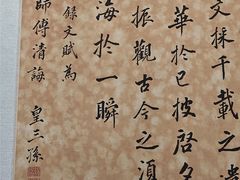 文採千載之遺
華於已披啓夕
振觀古今之須
海於一瞬
錄文賦為
師傅清誨
皇三孫